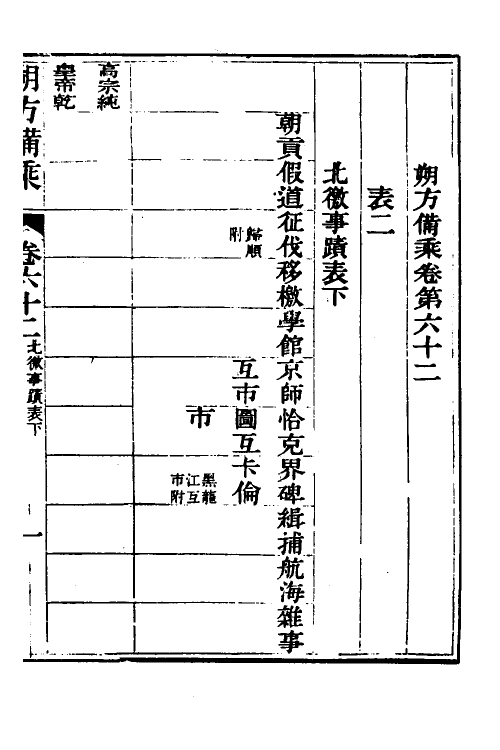 朔方備乘卷第六十二
表二
北徼事蹟表下
朝貢假道征伐移檄學館京師恰克界碑緝捕航海雜事
歸順
附
互市圖互卡倫
市
黑龍
江互
市附
高宗純
皇帝乾
朔方備乘
卷六十二
北徼事蹟表下
一